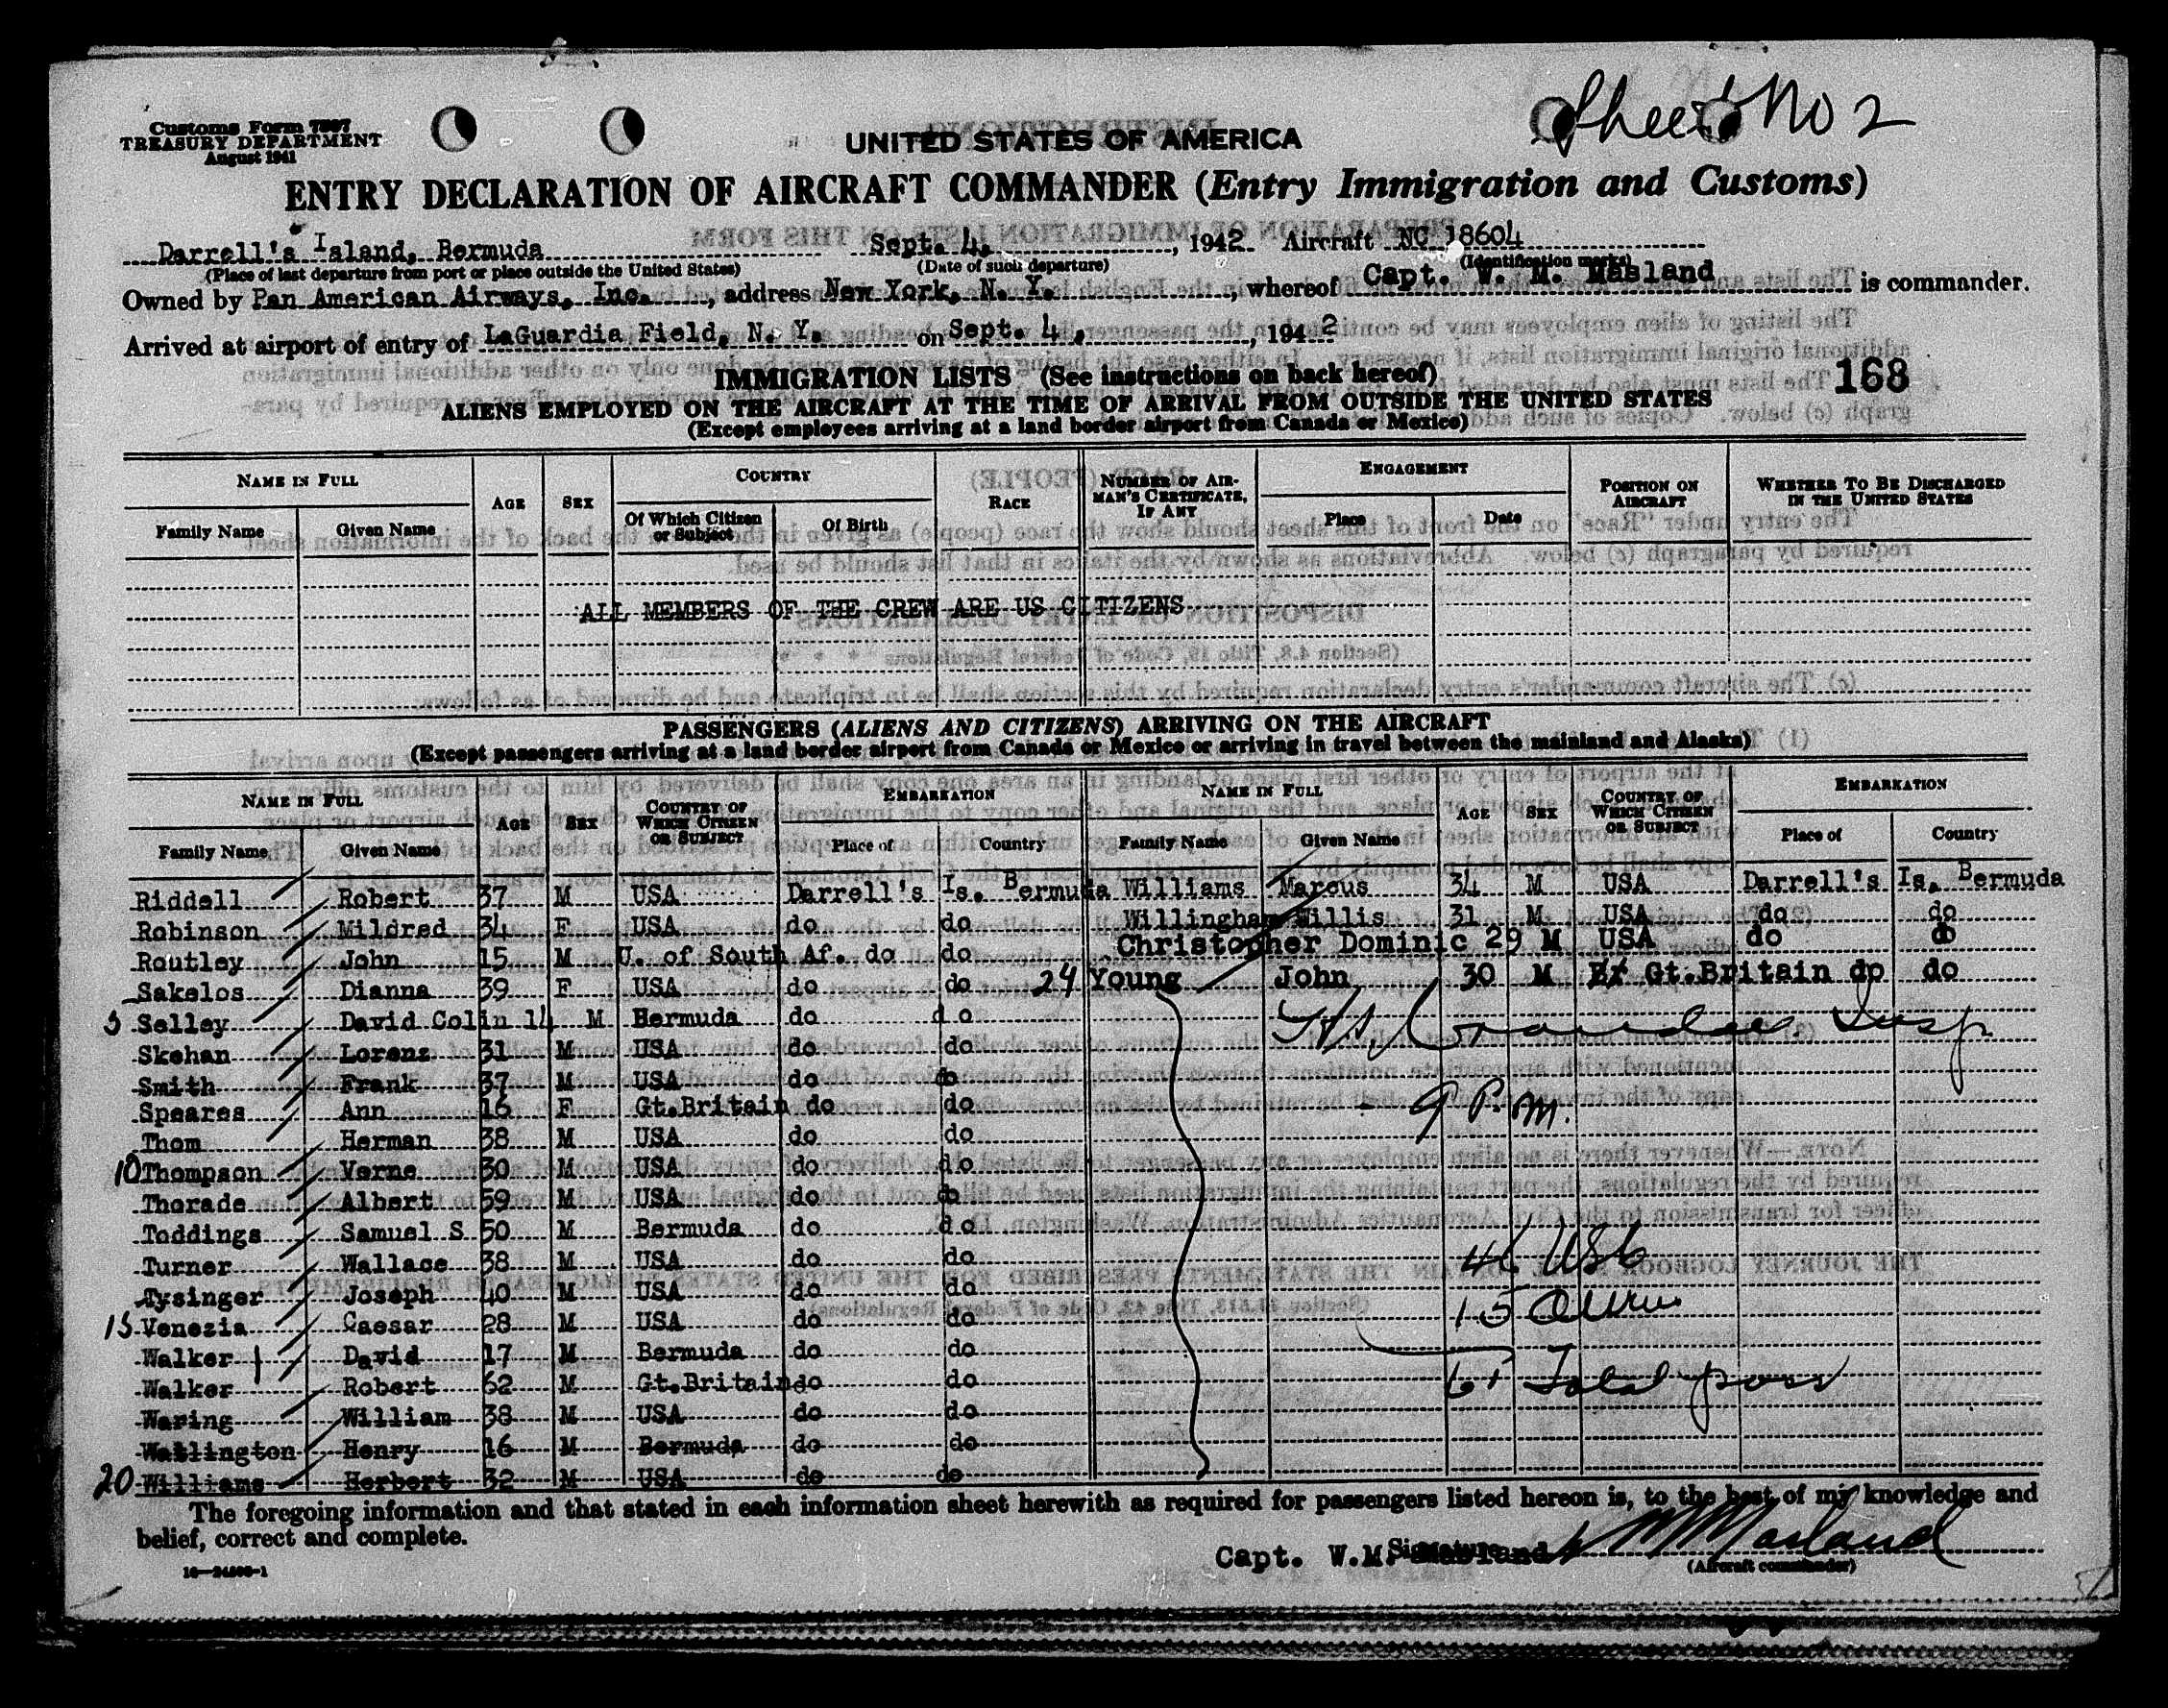 Sheet No 2
Customs Form 7507
TREASURY DEPARTMENT
August 1941
UNITED STATES OF AMERICA
ENTRY DECLARATION OF AIRCRAFT COMMANDER (Entry Immigration and Customs)
Darrell's Island, Bermuda Sept. 4, , 1942 Aircraft NC 18604
(Place of last departure from port or place outside the United States) (Date of such departure) (Identification marks)
Owned by Pan American Airways, Inc. , address New York, N. Y. , whereof Capt. W. M. Masland is commander.
Arrived at airport of entry of LaGuardia Field, N. Y. on Sept. 4, , 1942
IMMIGRATION LISTS (See instructions on back hereof) 168
ALIENS EMPLOYED ON THE AIRCRAFT AT THE TIME OF ARRIVAL FROM OUTSIDE THE UNITED STATES
(Except employees arriving at a land border airport from Canada or Mexico)
NAME IN FULL AGE SEX COUNTRY RACE NUMBER OF AIRMAN'S CERTIFICATE, IF ANY ENGAGEMENT POSITION ON AIRCRAFT WHETHER TO BE DISCHARGED IN THE UNITED STATES
Family Name Given Name Of Which Citizen or Subject Of Birth Place Date
ALL MEMBERS OF THE CREW ARE US CITIZENS
PASSENGERS (ALIENS AND CITIZENS) ARRIVING ON THE AIRCRAFT
(Except passengers arriving at a land border airport from Canada or Mexico or arriving in travel between the mainland and Alaska)
NAME IN FULL AGE SEX COUNTRY OF WHICH CITIZEN OR SUBJECT EMBARKATION NAME IN FULL AGE SEX COUNTRY OF WHICH CITIZEN OR SUBJECT EMBARKATION
Family Name Given Name Place of Country Family Name Given Name Place of Country
Riddell Robert 37 M USA Darrell's Is. Bermuda Williams Marcus 34 M USA Darrell's Is. Bermuda
Robinson Mildred 34 F USA do do Willingham Willis 31 M USA do do
Routley John 15 M U. of South Af. do do Christopher Dominic 29 M USA do do
Sakelos Dianna 39 F USA do do 24 Young John 30 M Gt.Britain do do
5 Selley David Colin 14 M Bermuda do do
Skehan Lorenz 31 M USA do do
Smith Frank 37 M USA do do
Speares Ann 16 F Gt.Britain do do 9 P.M.
Thom Herman 38 M USA do do
10 Thompson Verne 30 M USA do do
Thorade Albert 59 M USA do do
Toddings Samuel S 50 M Bermuda do do
Turner Wallace 38 M USA do do 46 USC
Tysinger Joseph 40 M USA do do
15 Venezia Caesar 28 M USA do do 15 Aliens
Walker David 17 M Bermuda do do
Walker Robert 62 M Gt.Britain do do 61 Total pass
Waring William 38 M USA do do
Watlington Henry 16 M Bermuda do do
20 Williams Herbert 32 M USA do do
The foregoing information and that stated in each information sheet herewith as required for passengers listed hereon is, to the best of my knowledge and
belief, correct and complete.
Capt. W.M. Masland Signature W M Masland
(Aircraft commander)